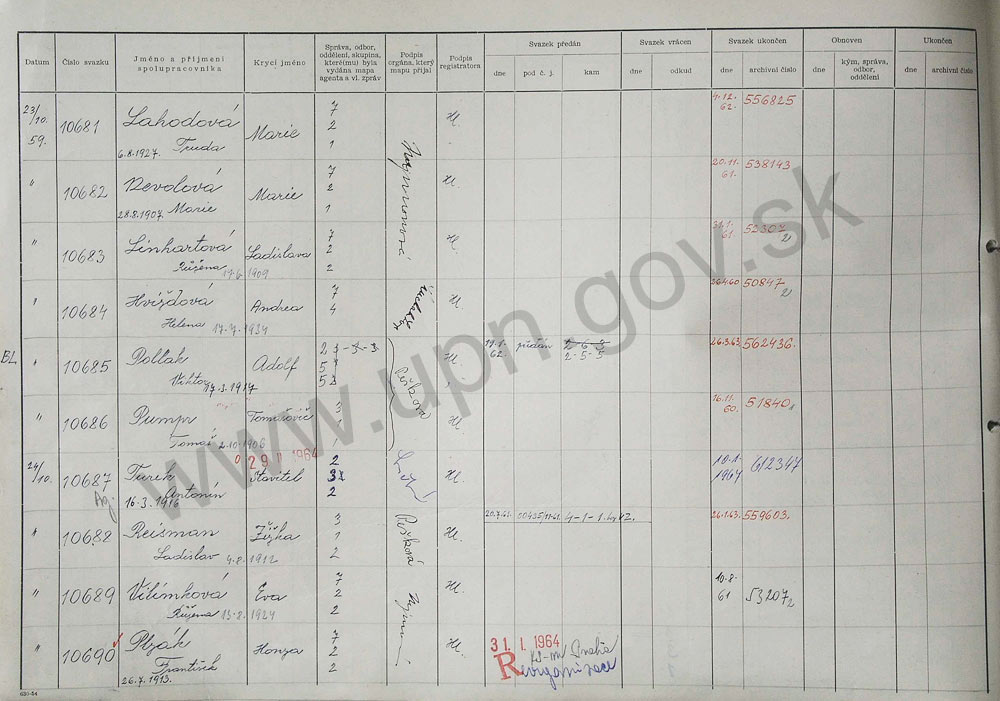 Datum
Číslo svazku
Jméno a příjmení
spolupracovníka
Krycí jméno
Správa, odbor,
oddělení, skupina,
které(mu) byla
vydána mapa
agenta a vl. zpráv
Podpis
orgána, který
mapu přijal
Podpis
registrátora
Svazek předán
dne
pod č. j.
kam
Svazek vrácen
dne
odkud
Svazek ukončen
dne
archivní číslo
Obnoven
dne
kým, správa,
odbor,
oddělení
Ukončen
dne
archivní číslo
23/
10.
59.
10681
Lahodová
Truda
6.8.1927.
Marie
7
2
1
Hl.
4.12.
62.
556825
"
10682
Nevolová
28.8.1907. Marie
Marie
7
2
1
Hl.
20.11.
61.
538143
"
10683
Linhartová
Růžena 17.6.1909
Ladislava
7
2
2
Hl.
31.1.
61
52307
2
"
10684
Hvižďová
Helena 17.7.1934
Andrea
7
7
4
Hl.
26.4.60.
50847
2
BL
"
10685
Pollak
Viktor 17.3.1917
Adolf
Pešková
Hl.
19.1.
62.
předán
2-6-3
2-5-5
26.3.63.
562436.
"
10686
Pumpr
Tomáš 2.10.1906
Tomašovič
3
1
1
Hl.
16.11.
60.
51840
1
24/10.
10687
Ag.
Turek
16.3.1916 Antonín
29 II 1964
Stavitel
2
3
2
Hl.
10.1.
1967
612347
"
10688
Reisman
Ladislav 4.8.1912
Žižka
3
1
2
Pešková
Hl.
20.7.61.
26.1.63.
559603.
"
10689
Vilímková
Růžena 13.8.1924
Eva
7
2
2
Hl.
10.8.
61
53207
2
"
10690
Plzák
František
26.7.1913.
Honza
7
2
2
Hl.
31. 1. 1964
Praha
Reorganisace
www.upn.gov.sk